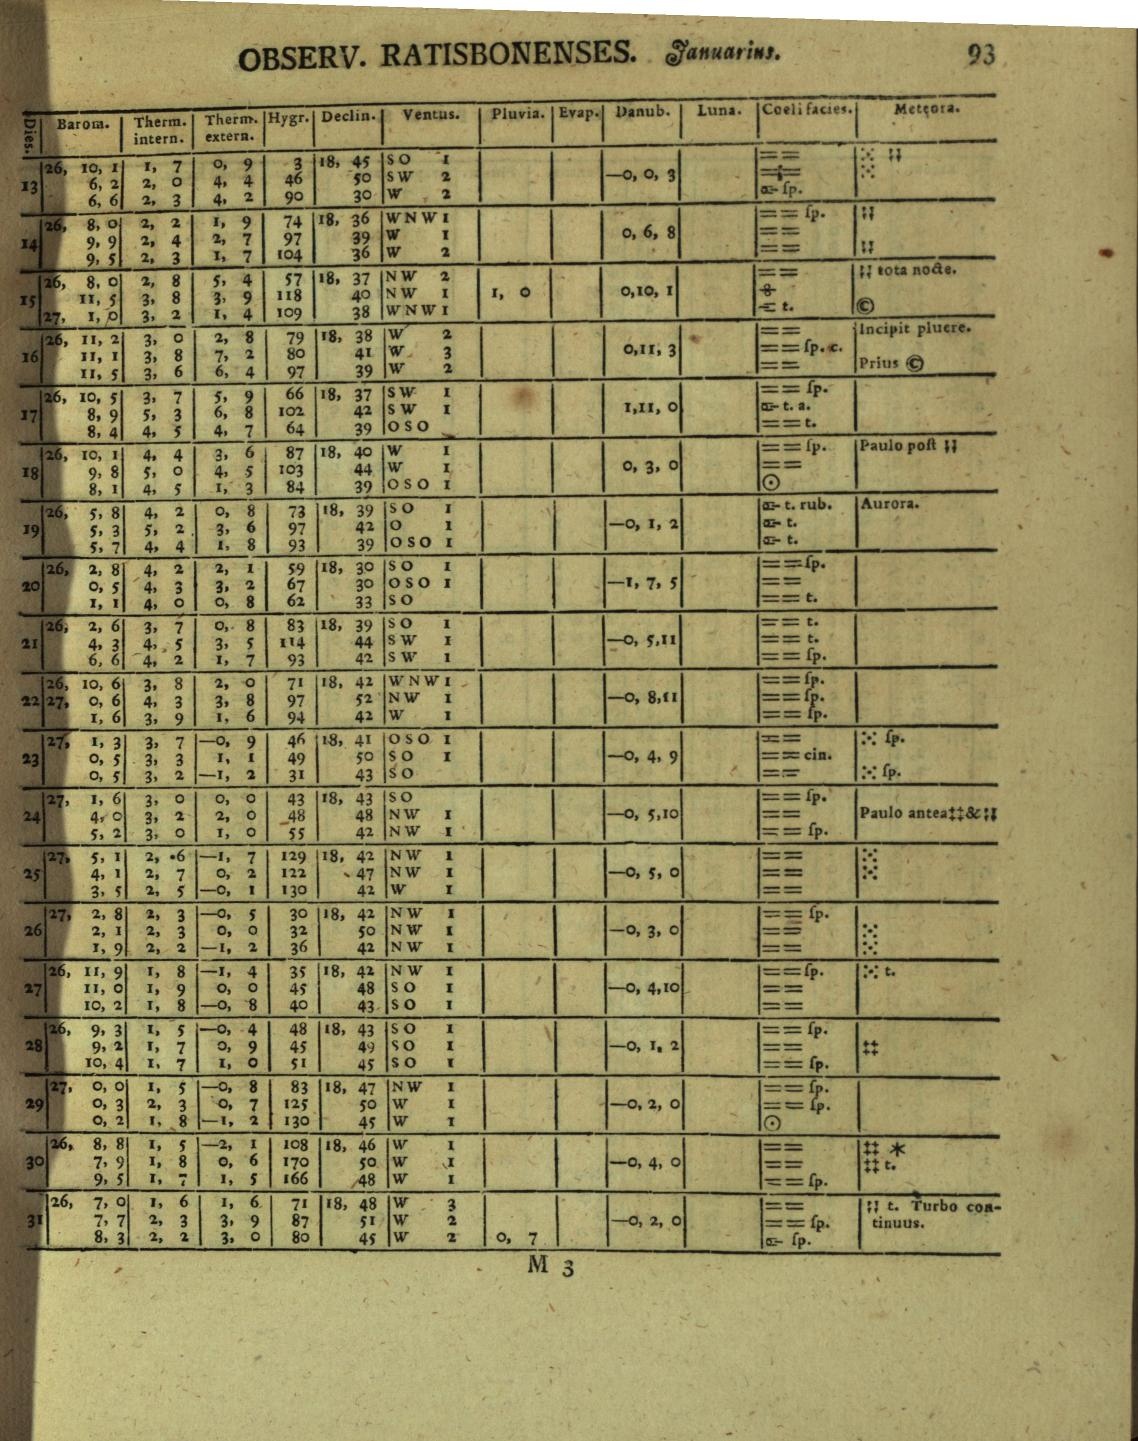 OBSERV. RATISBONENSES. Januarius. 93
Dies. Barom. Therm. intern. Therm. extern. Hygr. Declin. Ventus. Pluvia. Evap. Danub. Luna. Coeli facies. Meteora.
26, 10, 1 1, 7 0, 9 3 18, 45 SO 1 == ⁙ ;;
13 6, 2 2, 0 4, 4 46 50 SW 2 —0, 0, 3 ⁙
6, 6 2, 3 4, 2 90 30 W 2 ſp.
26, 8, 0 2, 2 1, 9 74 18, 36 WNW 1 == ſp. ;;
14 9, 9 2, 4 2, 7 97 39 W 1 0, 6, 8 ==
9, 5 2, 3 1, 7 104 36 W 2 == ;;
26, 8, 0 2, 8 5, 4 57 18, 37 NW 2 == ;; tota nocte.
15 11, 5 3, 8 3, 9 118 40 NW 1 1, 0 0,10, 1
27, 1, 0 3, 2 1, 4 109 38 WNW 1 t. ©
26, 11, 2 3, 0 2, 8 79 18, 38 W 2 == Incipit pluere.
16 11, 1 3, 8 7, 2 80 41 W 3 0,11, 3 == ſp. c.
11, 5 3, 6 6, 4 97 39 W 2 == Prius ©
26, 10, 5 3, 7 5, 9 66 18, 37 SW 1 == ſp.
17 8, 9 5, 3 6, 8 102 42 SW 1 1,11, 0 t. a.
8, 4 4, 5 4, 7 64 39 OSO == t.
26, 10, 1 4, 4 3, 6 87 18, 40 W 1 == ſp. Paulo poſt ;;
18 9, 8 5, 0 4, 5 103 44 W 1 0, 3, 0 ==
8, 1 4, 5 1, 3 84 39 OSO 1 ⊙
26, 5, 8 4, 2 0, 8 73 18, 39 SO 1 t. rub. Aurora.
19 5, 3 5, 2 3, 6 97 42 O 1 —0, 1, 2 t.
5, 7 4, 4 1, 8 93 39 OSO 1 t.
26, 2, 8 4, 2 2, 1 59 18, 30 SO 1 == ſp.
20 0, 5 4, 3 3, 2 67 30 OSO 1 —1, 7, 5 ==
1, 1 4, 0 0, 8 62 33 SO == t.
26, 2, 6 3, 7 0, 8 83 18, 39 SO 1 == t.
21 4, 3 4, 5 3, 5 114 44 SW 1 —0, 5,11 == t.
6, 6 4, 2 1, 7 93 42 SW 1 == ſp.
26, 10, 6 3, 8 2, 0 71 18, 42 WNW 1 == ſp.
22 27, 0, 6 4, 3 3, 8 97 52 NW 1 —0, 8,11 == ſp.
1, 6 3, 9 1, 6 94 42 W 1 == ſp.
27, 1, 3 3, 7 —0, 9 46 18, 41 OSO 1 == ⁙ ſp.
23 0, 5 3, 3 1, 1 49 50 SO 1 —0, 4, 9 == cin.
0, 5 3, 2 —1, 2 31 43 SO == ⁙ ſp.
27, 1, 6 3, 0 0, 0 43 18, 43 SO == ſp.
24 4, 0 3, 2 2, 0 48 48 NW 1 —0, 5,10 == Paulo antea ‡‡ & ;;
5, 2 3, 0 1, 0 55 42 NW 1 == ſp.
27, 5, 1 2, 6 —1, 7 129 18, 42 NW 1 == ⁙
25 4, 1 2, 7 0, 2 122 47 NW 1 —0, 5, 0 == ⁙
3, 5 2, 5 —0, 1 130 42 W 1 ==
27, 2, 8 2, 3 —0, 5 30 18, 42 NW 1 == ſp.
26 2, 1 2, 3 0, 0 32 50 NW 1 —0, 3, 0 == ⁙
1, 9 2, 2 —1, 2 36 42 NW 1 == ⁙
26, 11, 9 1, 8 —1, 4 35 18, 42 NW 1 == ſp. ⁙ t.
27 11, 0 1, 9 0, 0 45 48 SO 1 —0, 4,10 ==
10, 2 1, 8 —0, 8 40 43 SO 1 ==
26, 9, 3 1, 5 —0, 4 48 18, 43 SO 1 == ſp.
28 9, 2 1, 7 0, 9 45 49 SO 1 —0, 1, 2 == ‡‡
10, 4 1, 7 1, 0 51 45 SO 1 == ſp.
27, 0, 0 1, 5 —0, 8 83 18, 47 NW 1 == ſp.
29 0, 3 2, 3 0, 7 125 50 W 1 —0, 2, 0 == ſp.
0, 2 1, 8 —1, 2 130 45 W 1 ⊙
26, 8, 8 1, 5 —2, 1 108 18, 46 W 1 == ‡‡ *
30 7, 9 1, 8 0, 6 170 50 W 1 —0, 4, 0 == ‡‡ t.
9, 5 1, 7 1, 5 166 48 W 1 == ſp.
26, 7, 0 1, 6 1, 6 71 18, 48 W 3 == ;; t. Turbo con-
31 7, 7 2, 3 3, 9 87 51 W 2 —0, 2, 0 == ſp. tinuus.
8, 3 2, 2 3, 0 80 45 W 2 0, 7 ſp.
M 3